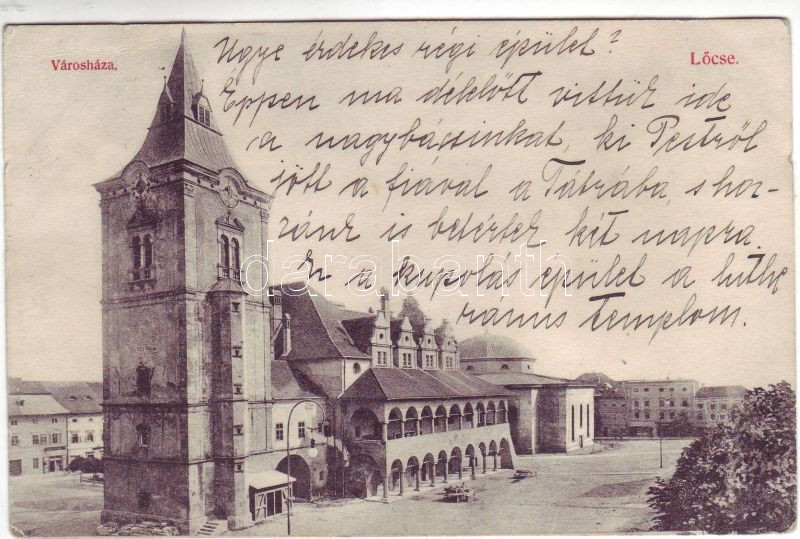 Városháza.
Lőcse.
Ugye érdekes régi épület?
Éppen ma délelőtt vittük ide
a nagybácsinkat, ki Pestről
jött a fiával a Tátrába, s hoz-
zánk is betértek két napra.
Ez a kupolás épület a luthe
ránus templom.
darabanth